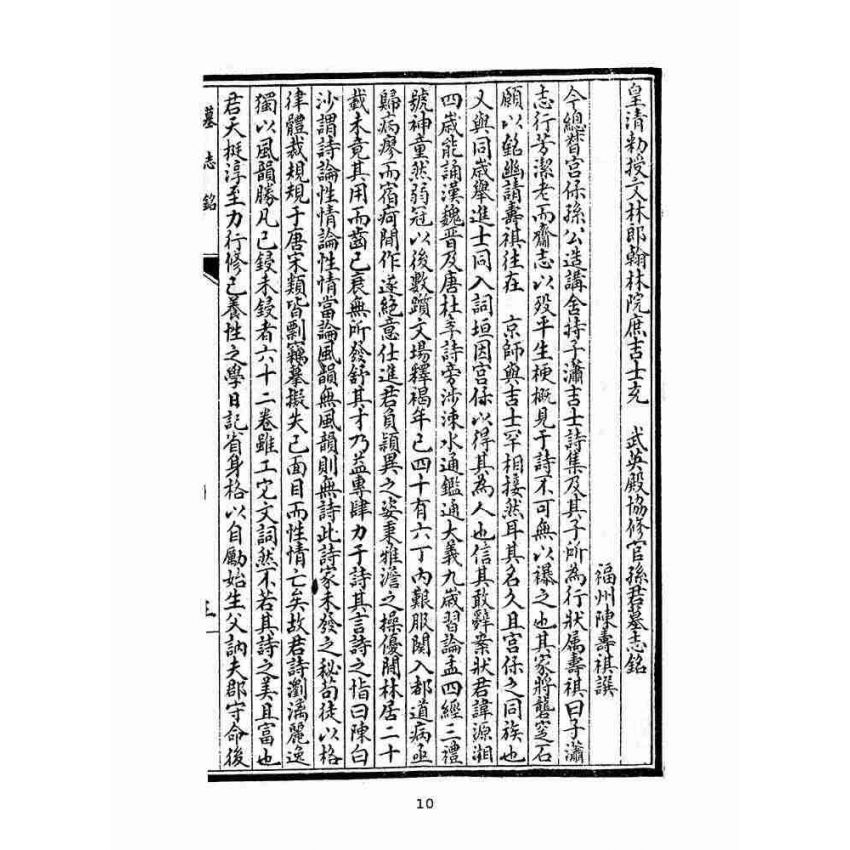 皇清勅授文林郎翰林院庶吉士充　武英殿協修官孫君墓志銘
福州陳壽祺譔
今總督宮保孫公造講舍持子瀟吉士詩集及其子所為行狀属壽祺曰子瀟
志行芳潔老而齎志以殁平生梗概見于詩不可無以襮之也其家將礱窆石
願以銘幽請壽祺往在　京師與吉士罕相接然耳其名久且宮保之同族也
又與同歲舉進士同入詞垣因宮保以得其為人也信其敢辭案狀君諱源湘
四歲能誦漢魏晉及唐杜李詩旁涉涑水通鑑通大義九歲習論孟四經三禮
號神童然弱冠以後數躓文場釋褐年已四十有六丁內艱服闋入都道病亟
歸病瘳而宿疴間作遂絕意仕進君負穎異之姿秉雅澹之操優閒林居二十
載未竟其用而齒已衰無所發舒其才乃益專肆力于詩其言詩之恉曰陳白
沙謂詩論性情論性情當論風韻無風韻則無詩此詩家未發之秘苟徒以格
律體裁規規于唐宋類皆剽竊摹擬失己面目而性情亡矣故君詩瀏漓麗逸
獨以風韻勝凡已鋟未鋟者六十二卷雖工它文詞然不若其詩之美且富也
君天挺淳至力行修己養性之學日記省身格以自勵始生父訥夫郡守命後
墓志銘
10